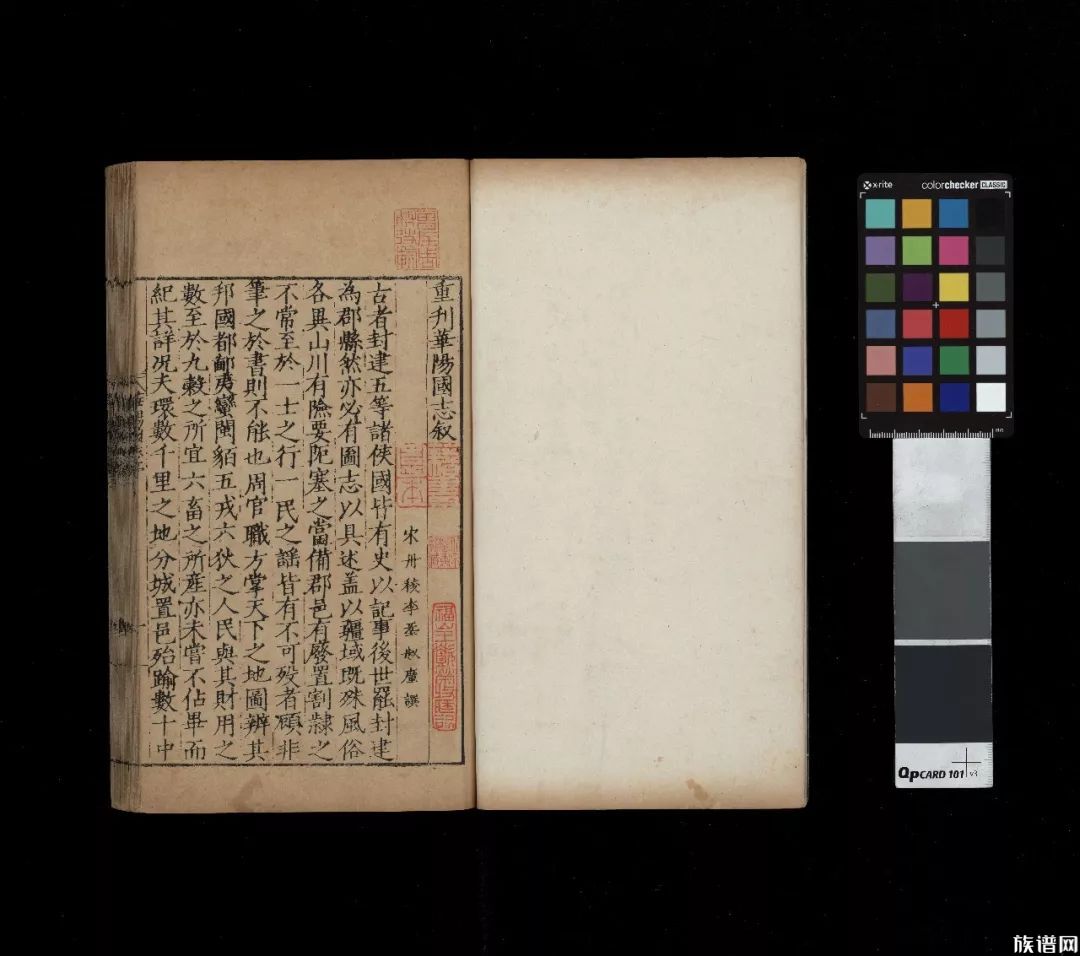 重刊華陽國志叙
宋丹稜李㲄叔廑譔
古者封建五等諸侯國皆有史以記事後世罷封建
為郡縣然亦必有圖志以具述盖以疆域既殊風俗
各異山川有險要阨塞之當備郡邑有廢置割隸之
不常至於一士之行一民之謡皆有不可殁者顧非
筆之於書則不能也周官職方掌天下之地圖辨其
邦國都鄙夷蠻閩貊五戎六狄之人民與其財用之
數至於九穀之所宜六畜之所産亦未嘗不佔畢而
紀其詳况夫環數千里之地分城置邑殆踰數十中
x-rite colorchecker CLASSIC
QPCARD 101 v3
族谱网